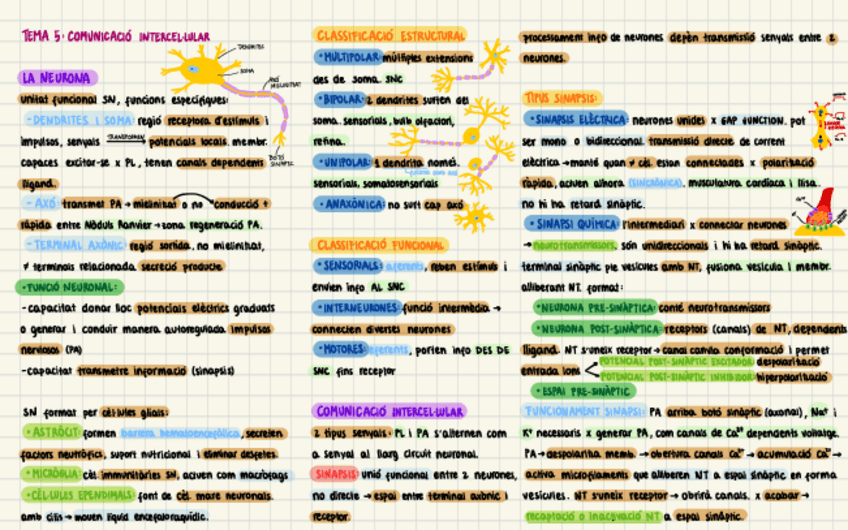 TEMA 5: COMUNICACIÓ INTERCEL·LULAR
DENDRITES
SOMA
AXÓ MIELINITZAT
BOTÓ SINÀPTIC
LA NEURONA
unitat funcional SN, funcions específiques:
-DENDRITES I SOMA: regió receptora d'estímuls i
impulsos, senyals TRANSFORMEN potencials locals. membr.
capaces excitar-se x PL, tenen canals dependents
lligand.
-AXÓ: transmet PA → mielinitat o no conducció +
ràpida entre Nòduls Ranvier → zona regeneració PA.
-TERMINAL AXÒNIC: regió sortida. no mielinitat,
≠ terminals relacionada secreció producte
•FUNCIÓ NEURONAL:
-capacitat donar lloc potencials elèctrics graduats
o generar i conduir manera autoregulada impulsos
nerviosos (PA)
-capacitat transmetre informació (sinapsis)
SN format per cèl·lules glials:
•ASTRÒCIT: formen barrera hematoencefàlica, secreten
factors neutròfics, suport nutricional i eliminar desfetes.
•MICRÒGLIA: cèl. immunitàries SN, actuen com macròfags
•CÈL·LULES EPENDIMALS font de cèl. mare neuronals.
amb cilis → mouen líquid encefaloraquídic.
CLASSIFICACIÓ ESTRUCTURAL
•MULTIPOLAR: múltiples extensions
des de soma. SNC
•BIPOLAR: 2 dendrites surten del
soma. sensorials, bulb olfactori,
retina.
•UNIPOLAR: 1 dendrita només.
sensorials, somatosensorials
•ANAXÒNICA: no surt cap axó
CLASSIFICACIÓ FUNCIONAL
•SENSORIALS: aferents, reben estímus i
envien info AL SNC
•INTERNEURONES: funció intermèdia →
connecten diverses neurones
•MOTORES: eferents, porten info DES DE
SNC fins receptor
COMUNICACIÓ INTERCEL·LULAR
2 tipus senyals: PL i PA s'alternen com
a senyal al llarg circuit neuronal.
SINAPSIS: unió funcional entre 2 neurones,
no directe → espai entre terminal axònic i
receptor.
processament info de neurones depèn transmissió senyals entre 2
neurones.
TIPUS SINAPSIS:
•SINAPSIS ELÈCTRICA: neurones unides x GAP JUNCTION. pot
ser mono o bidireccional. transmissió directe de corrent
elèctrica → manté quan ≠ cèl. estan connectades x polarització
ràpida, activen alhora (SINCRÒNICA). musculatura cardíaca i llisa.
no hi ha retard sinàptic.
•SINAPSI QUÍMICA: 1 intermediari x connectar neurones
→ neurotransmissors. són unidireccionals i hi ha retard sinàptic.
terminal sinàptic ple vesícules amb NT, fusiona vesícula i membr.
alliberant NT. format:
•NEURONA PRE-SINÀPTICA: conté neurotransmissors
•NEURONA POST-SINÀPTICA: receptors (canals) de NT, dependents
lligand. NT s'uneix receptor → canal canvia conformació i permet
entrada ions POTENCIAL POST-SINÀPTIC EXCITADOR: despolarització
POTENCIAL POST-SINÀPTIC INHIBIDOR: hiperpolarització
•ESPAI PRE-SINÀPTIC
FUNCIONAMENT SINAPSI: PA arriba botó sinàptic (axonal), Na⁺ i
K⁺ necessaris x generar PA, com canals de Ca²⁺ dependents voltatge.
PA → despolaritza memb. → obertura canals Ca²⁺ → acumulació Ca²⁺ →
activa microfilaments que alliberen NT a espai sinàptic en forma
vesícules. NT s'uneix receptor → obrirà canals. x acabar →
recaptació o inactivació NT a espai sinàptic.